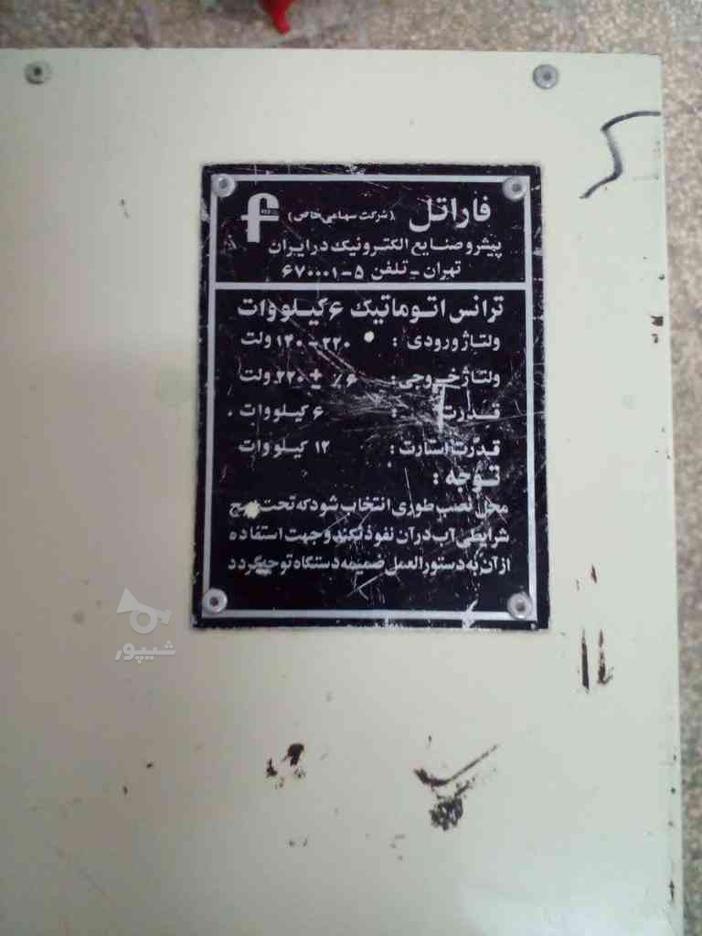 فاراتل (شرکت سهامی خاص)
پیشرو صنایع الکترونیک در ایران
تهران - تلفن ۵-۶۷۰۰۰۱
ترانس اتوماتیک ۶ کیلو وات
ولتاژ ورودی : ۲۲۰-۱۴۰ ولت
ولتاژ خروجی : ۶٪ ± ۲۲۰ ولت
قدرت : ۶ کیلو وات
قدرت استارت : ۱۲ کیلو وات
توجه :
محل نصب طوری انتخاب شود که تحت هیچ
شرایطی آب در آن نفوذ نکند و جهت استفاده
از آن به دستورالعمل ضمیمه دستگاه توجه گردد
شیپور